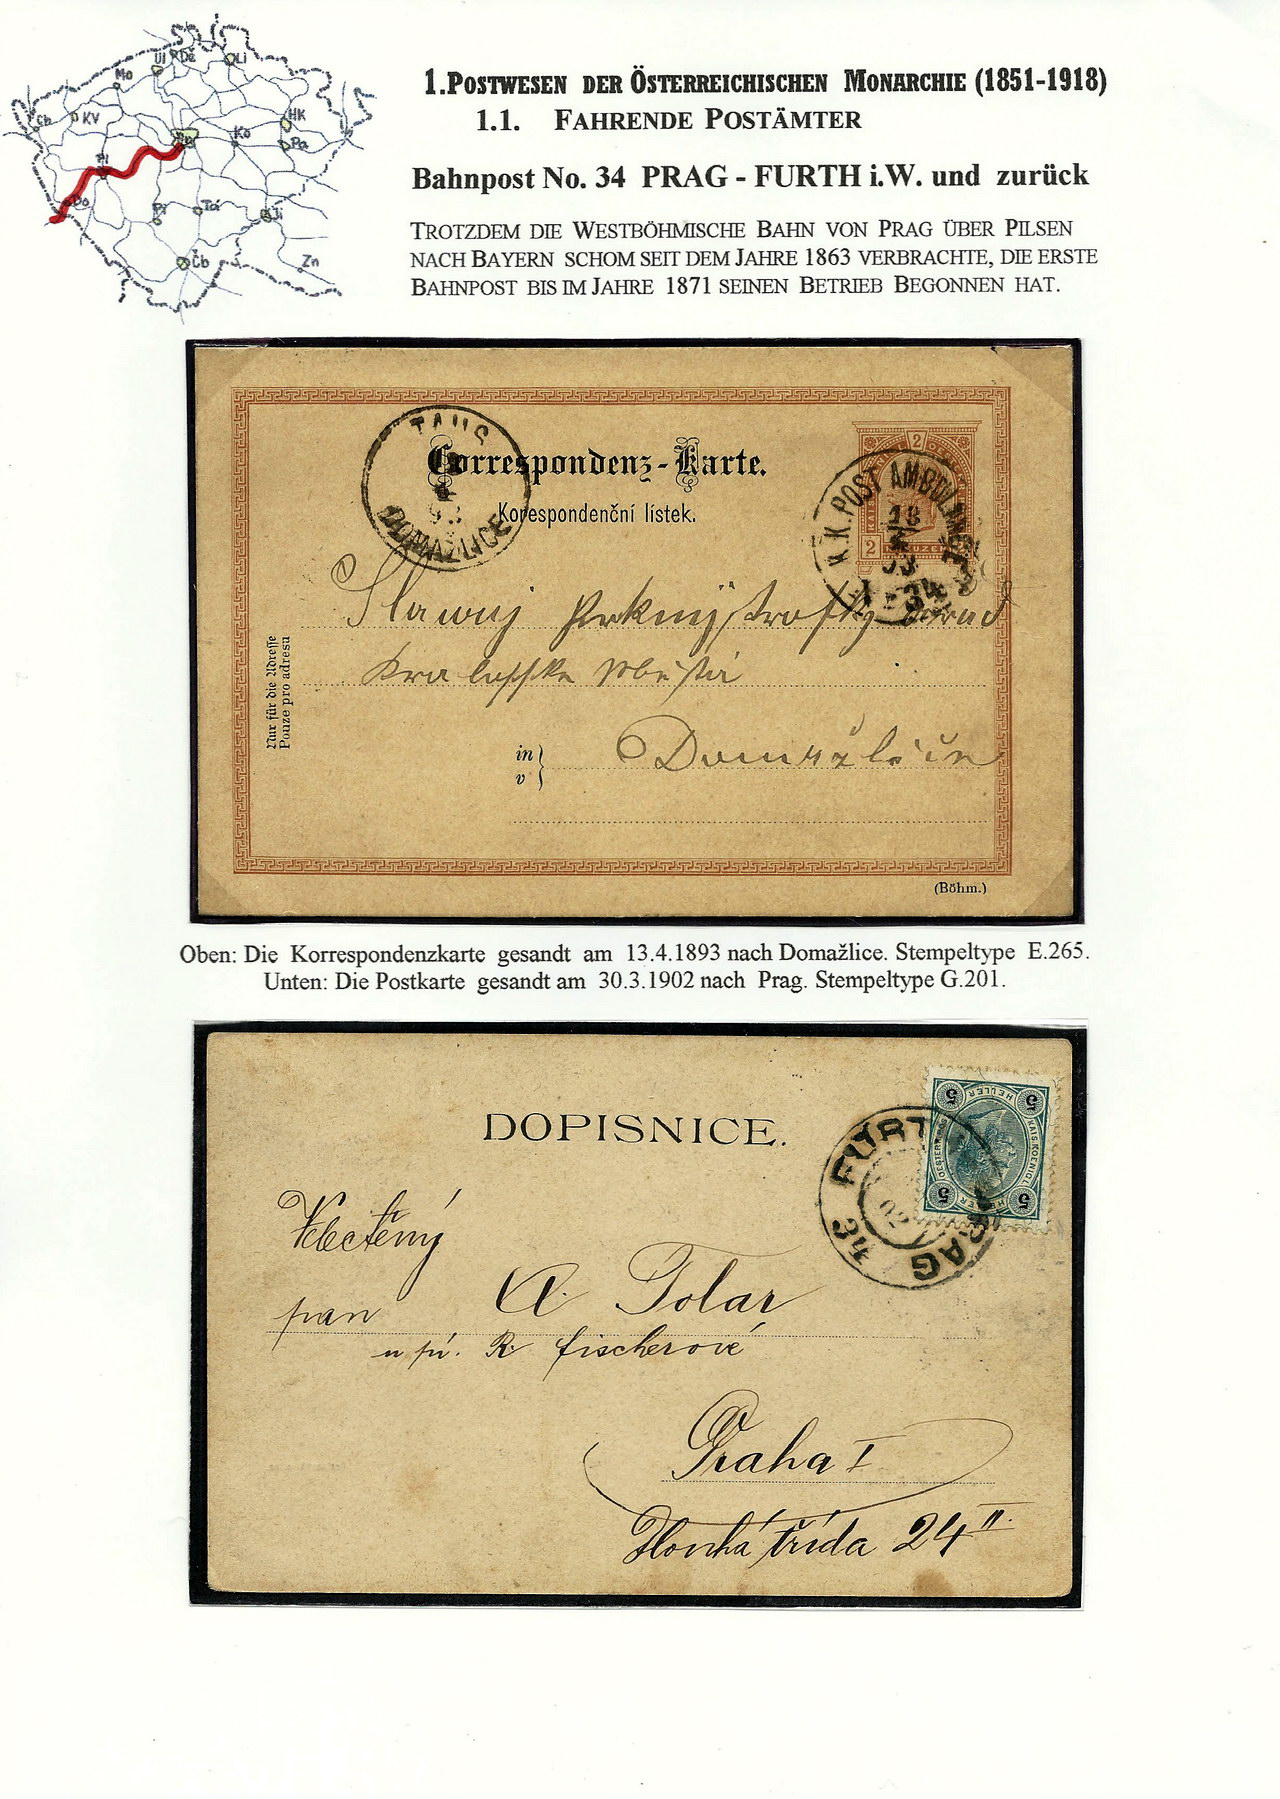 Ch
KV
Mo
Úl
Dě
Li
HK
Pa
Ko
Pl
Do
Tá
Ji
Čb
Zn
1.POSTWESEN DER ÖSTERREICHISCHEN MONARCHIE (1851-1918)
1.1. FAHRENDE POSTÄMTER
Bahnpost No. 34 PRAG - FURTH i.W. und zurück
TROTZDEM DIE WESTBÖHMISCHE BAHN VON PRAG ÜBER PILSEN
NACH BAYERN SCHOM SEIT DEM JAHRE 1863 VERBRACHTE, DIE ERSTE
BAHNPOST BIS IM JAHRE 1871 SEINEN BETRIEB BEGONNEN HAT.
TAUS
DOMAŽLICE
Correspondenz-Karte.
Korespondenční lístek.
2
2
K.K. POST AMBULANCE
34
Slawný
Nur für die Adresse
Pouze pro adresu
in
v
Domažlicíh
(Böhm.)
Oben: Die Korrespondenzkarte gesandt am 13.4.1893 nach Domažlice. Stempeltype E.265.
Unten: Die Postkarte gesandt am 30.3.1902 nach Prag. Stempeltype G.201.
DOPISNICE.
5 HELLER 5
KAIS.KOENIGL
5 HELLER 5
FÜRT
PRAG
34
02
Velectěný
pan A. Tolar
u pí. R. Fischerové
Praha I
Dlouhá třída 24 II.